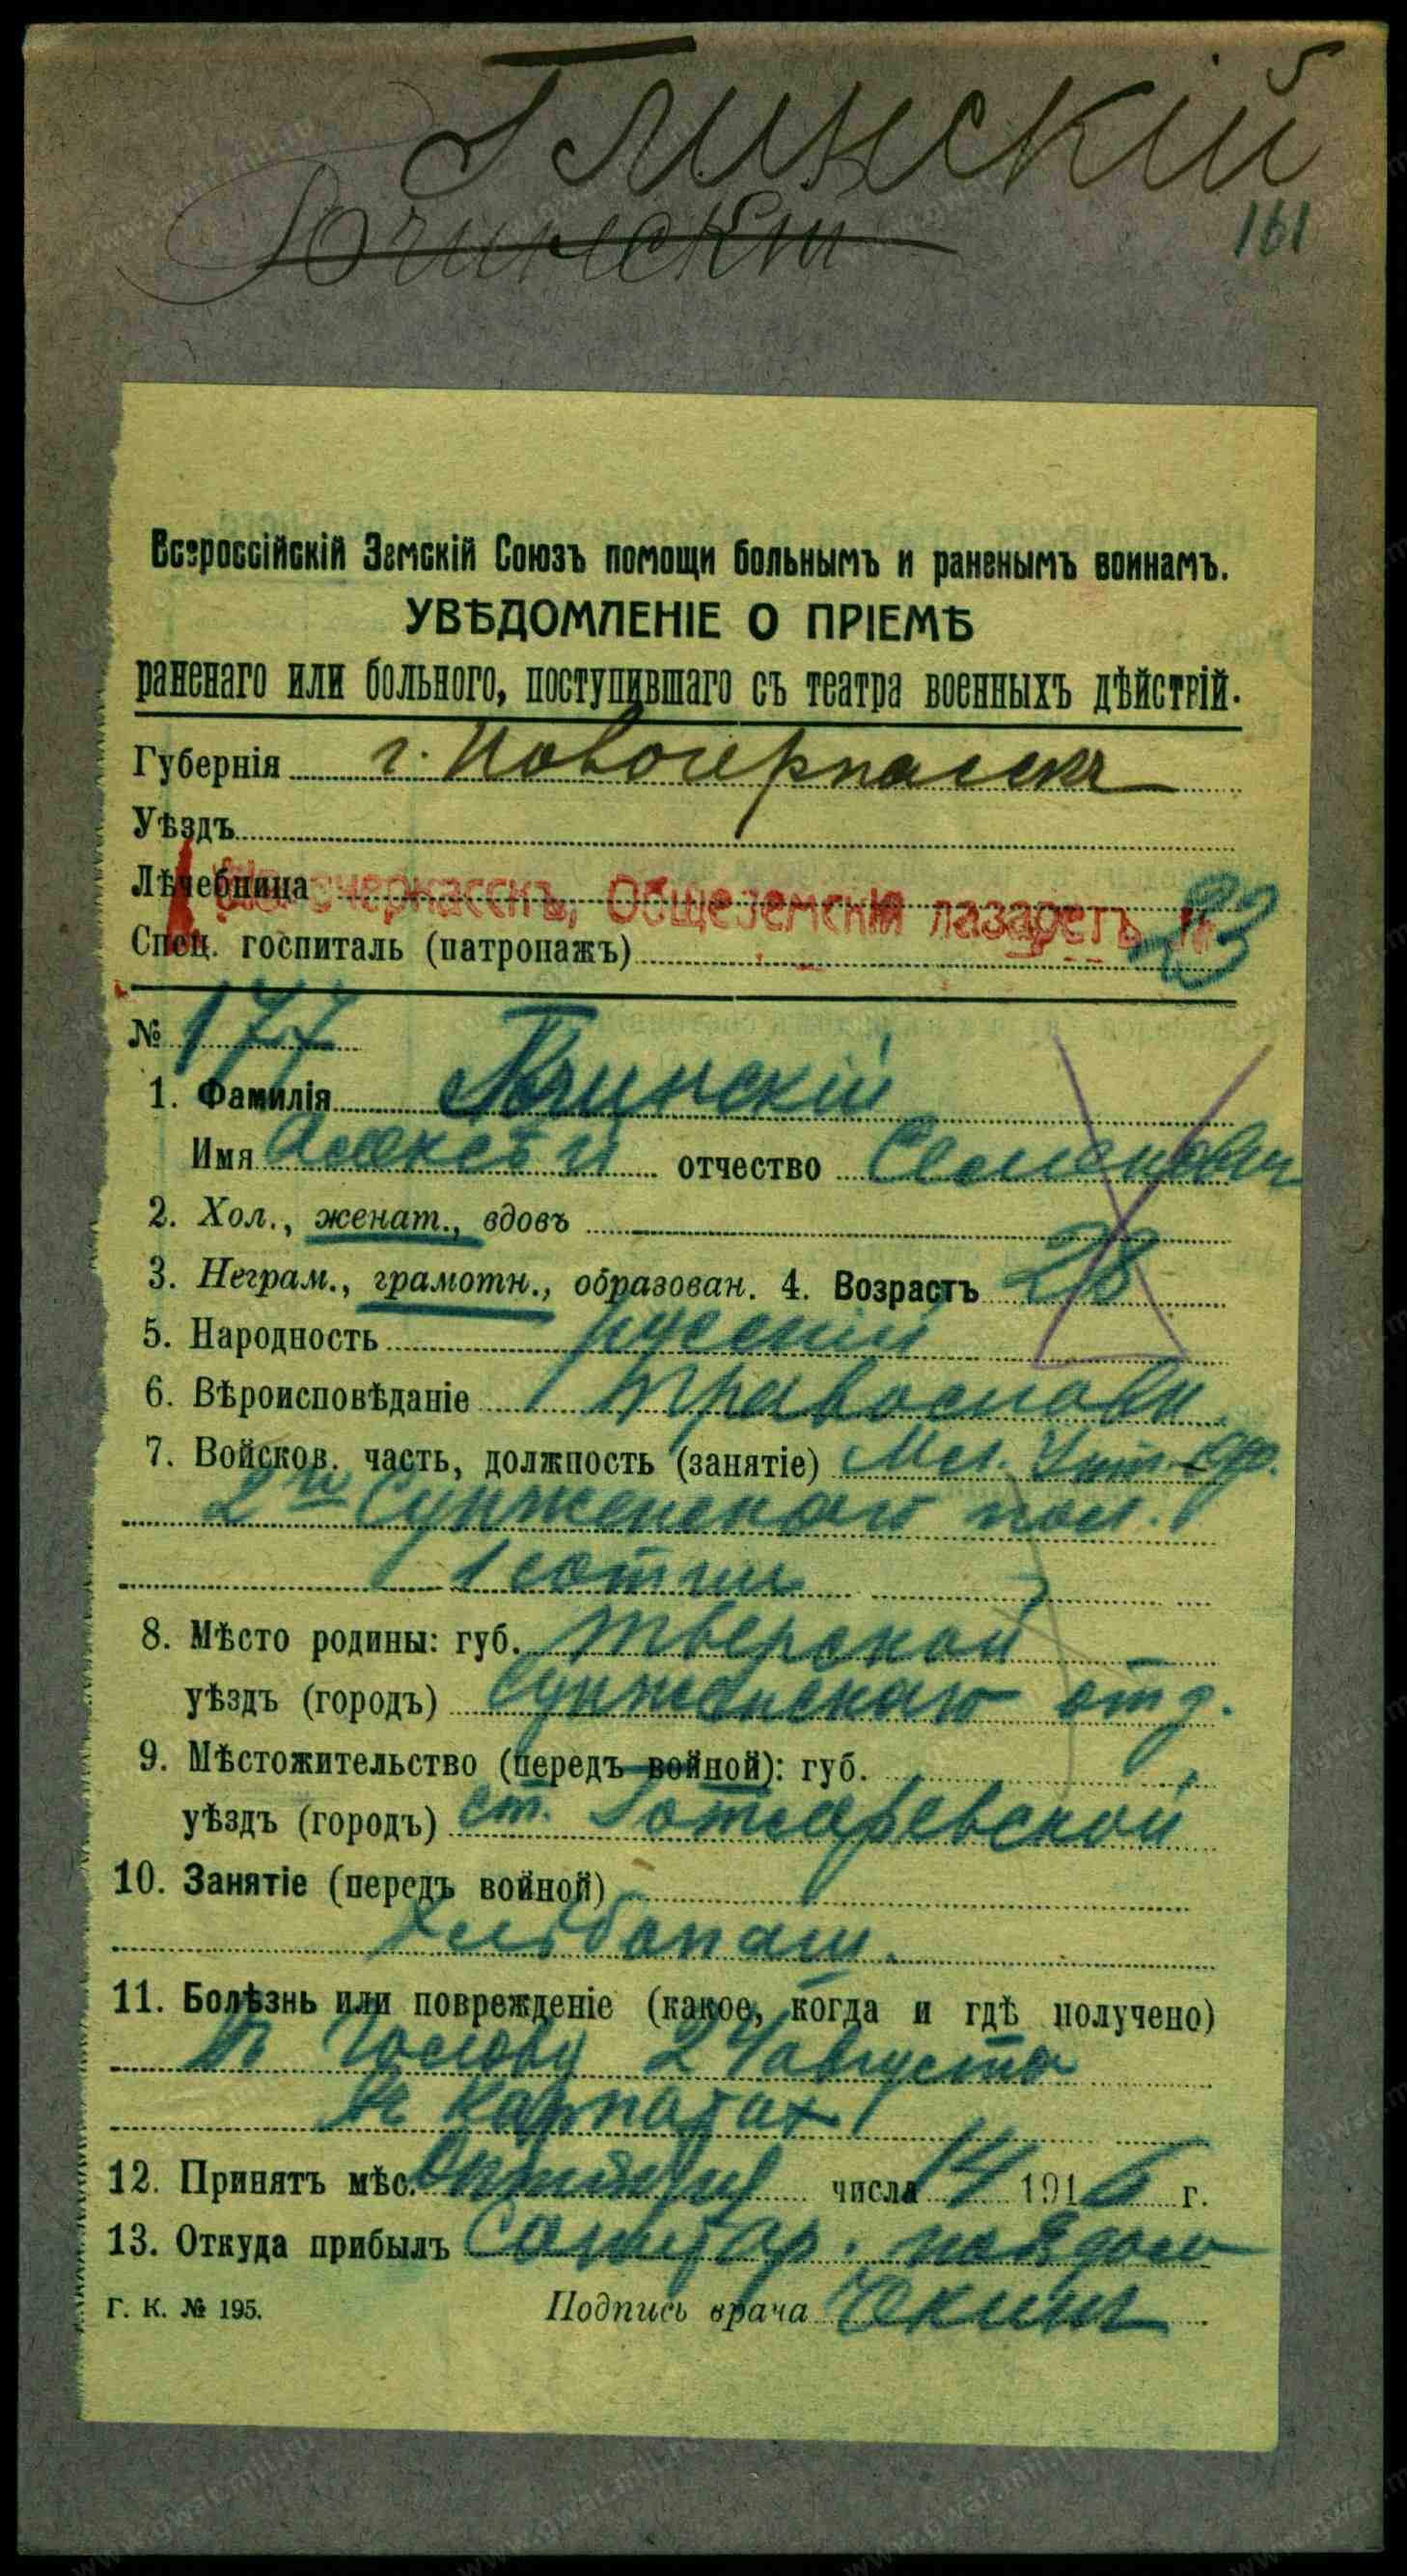 Глинскій
161
Всероссійскій Земскій Союзъ помощи больнымъ и раненымъ воинамъ.
УВѢДОМЛЕНІЕ О ПРІЕМѢ
раненаго или больного, поступившаго съ театра военныхъ дѣйствій.
Губернія г. Новочеркасскъ
Уѣздъ
Лѣчебница
Новочеркасскъ, Общеземскій лазаретъ № 23
Спец. госпиталь (патронажъ)
№ 177
1. Фамилія Глинскій
Имя Алексѣй отчество Семенович
2. Хол., женат., вдовъ
3. Неграм., грамотн., образован. 4. Возрастъ 28
5. Народность русскій
6. Вѣроисповѣданіе православн
7. Войсков. часть, должность (занятіе) Мл. Унт. Оф.
2го Сунженскаго пол.
1 сотни
8. Мѣсто родины: губ. Тверской
уѣздъ (городъ) Сунженскаго отд.
9. Мѣстожительство (передъ войной): губ.
уѣздъ (городъ) ст.
10. Занятіе (передъ войной)
Хлѣбопаш.
11. Болѣзнь или поврежденіе (какое, когда и гдѣ получено)
въ голову 24 августа
въ Карпатах
12. Принятъ мѣс. Октября числа 14 1916 г.
13. Откуда прибылъ Санитар. поѣздом
Г. К. № 195. Подпись врача
www.gwar.mil.ru